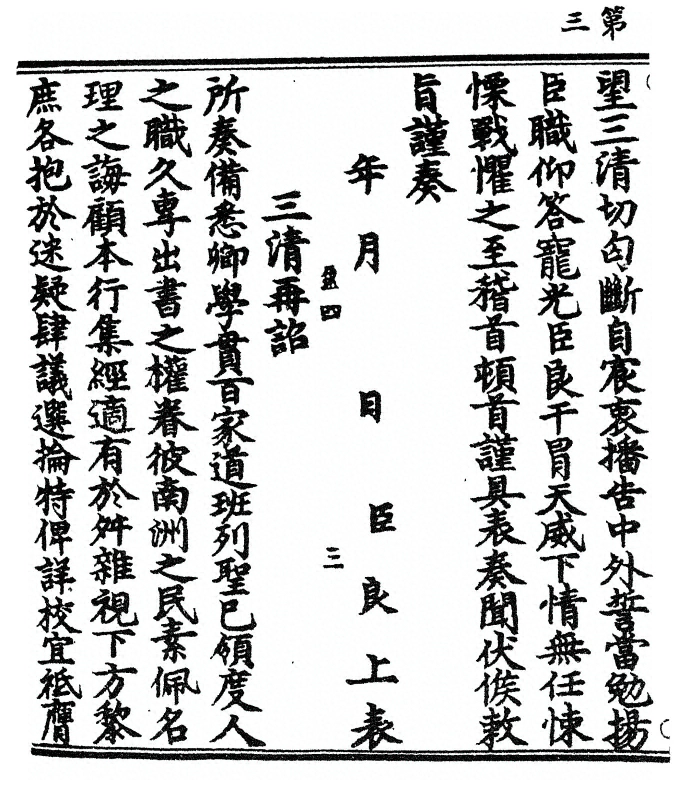 第三
望三清切匄斷自宸衷播告中外誓當勉揚
臣職仰答寵光臣良干冒天威下情無任悚
慄戰懼之至稽首頓首謹具表奏聞伏候敕
旨謹奏
年月 日 臣良上表
四 三
三清再詔
所奏備悉卿學貫百家道班列聖已領度人
之職久專出書之權眷彼南洲之民素佩名
理之誨顧本行集經適有於舛雜視下方黎
庶各抱於迷疑肆議選掄特俾詳校宜祗膺